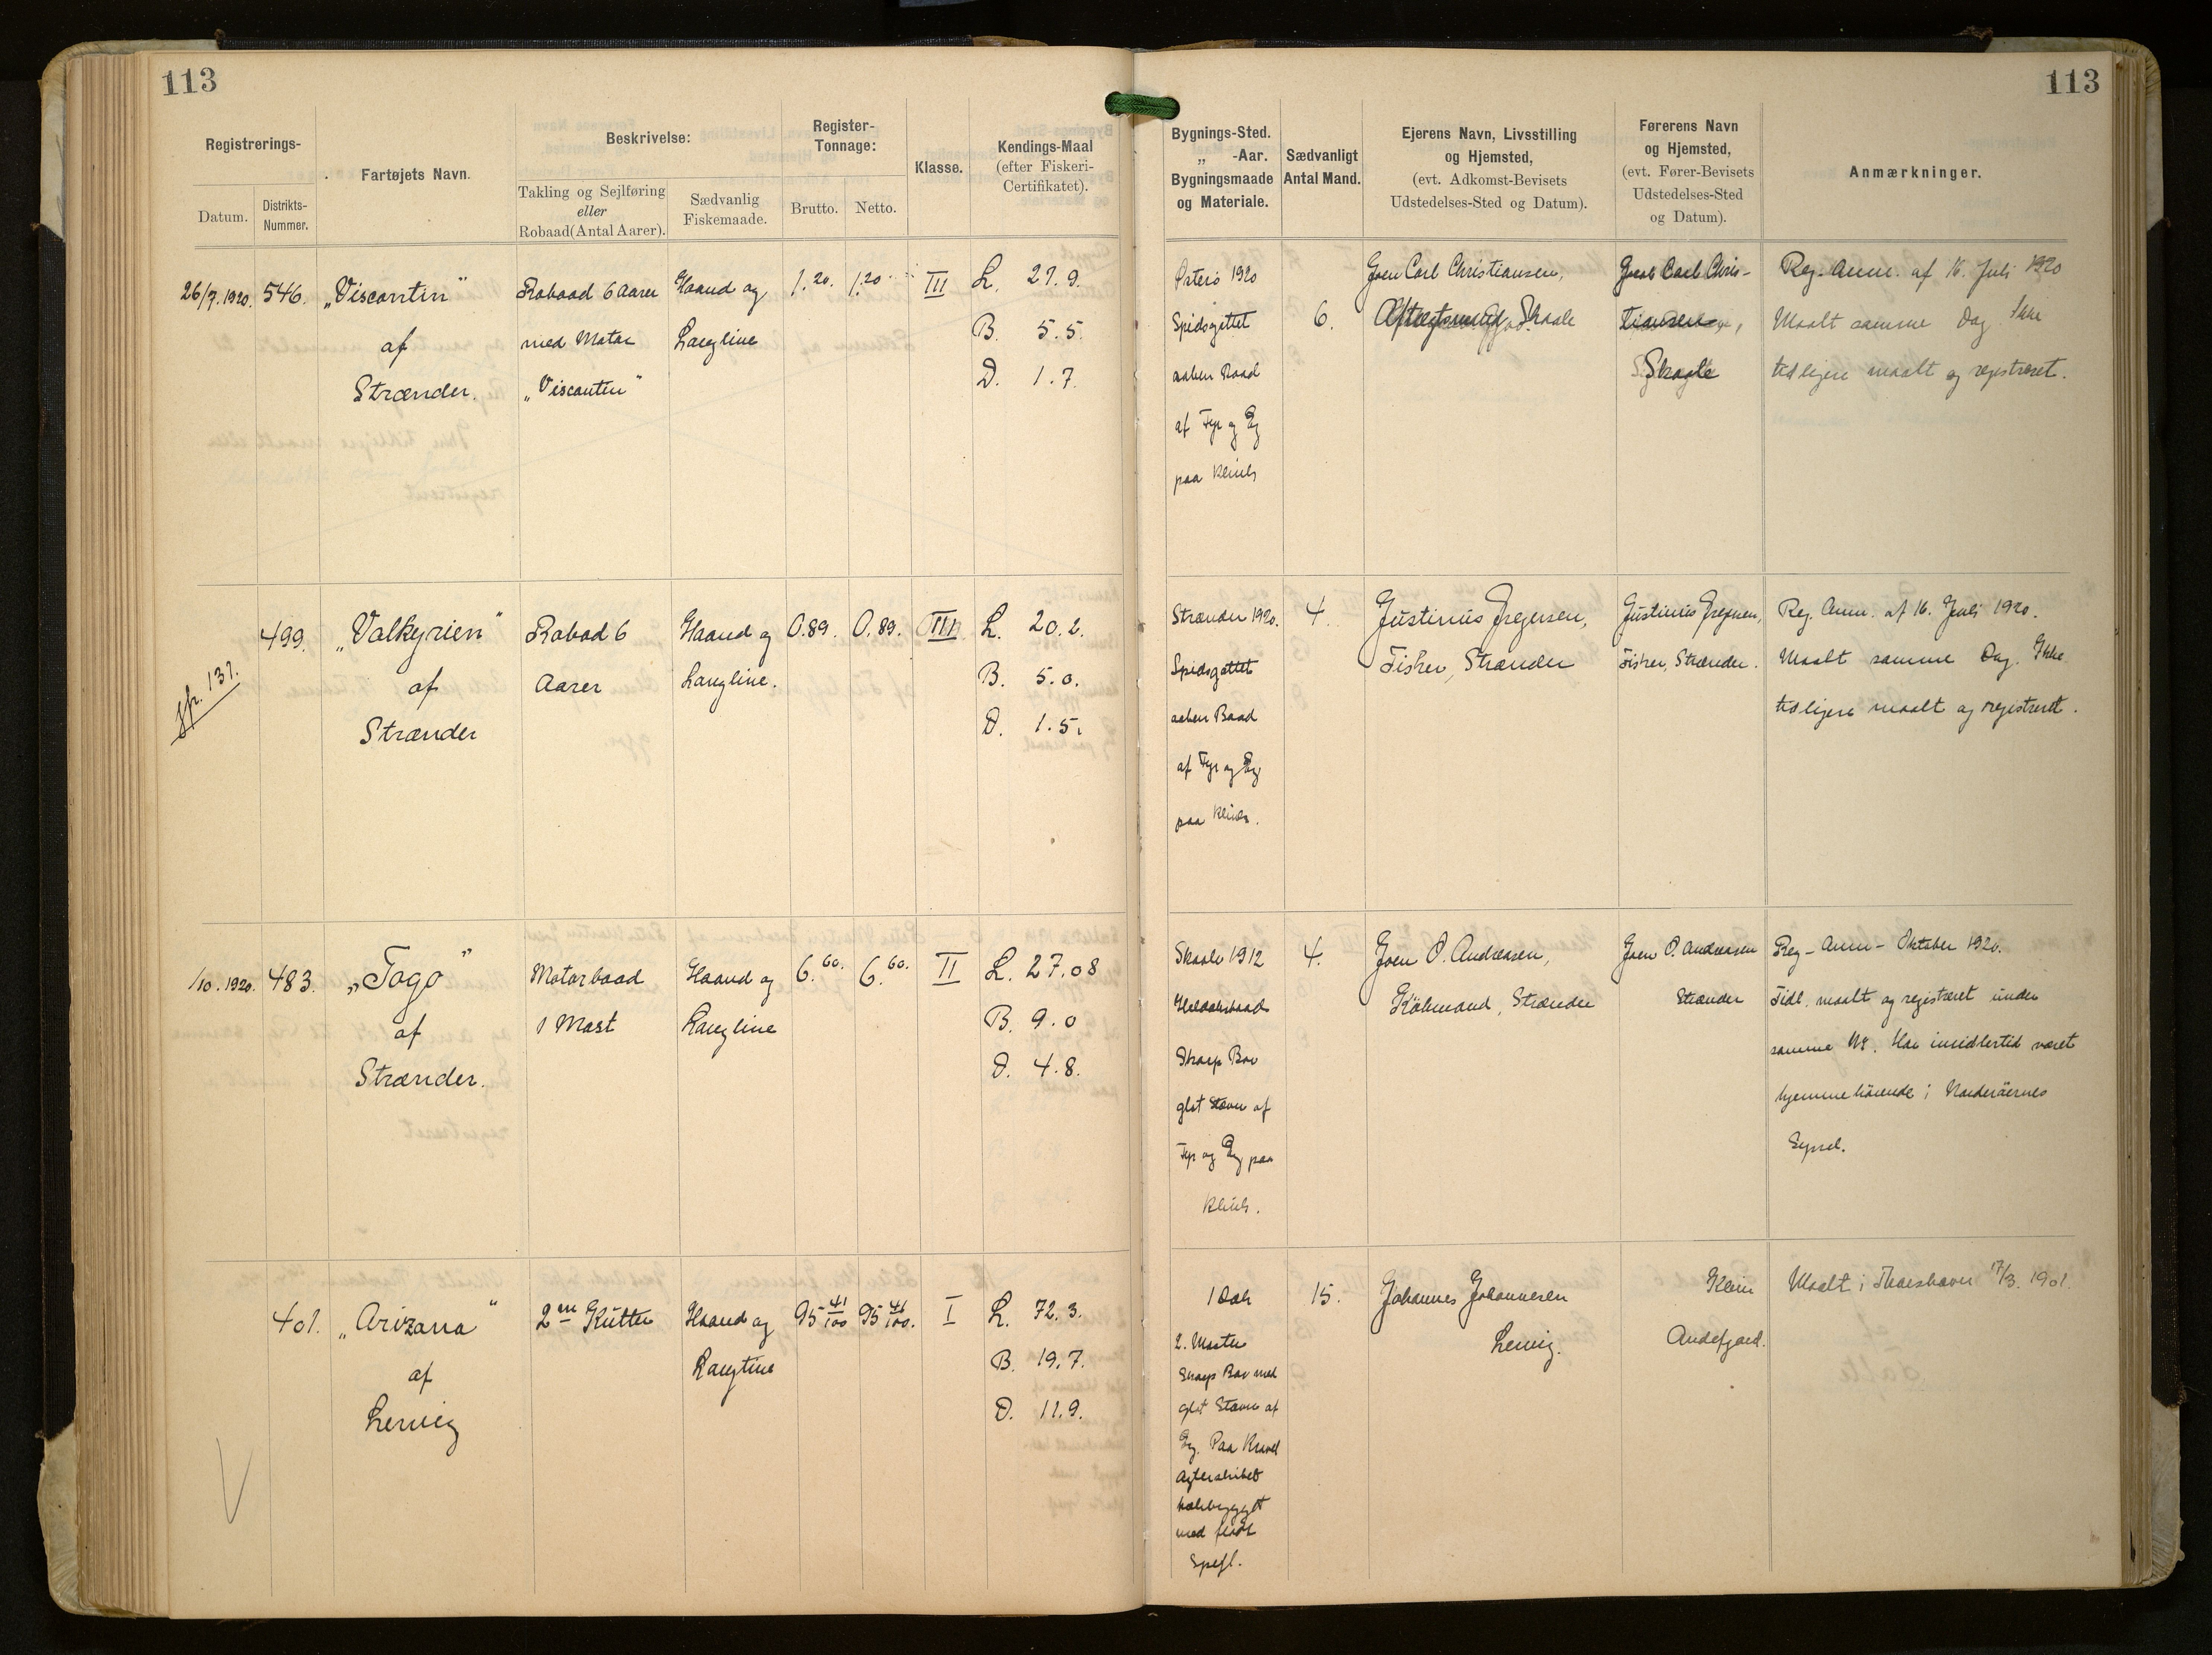 113
113
Registrerings-
Datum.
Distrikts-
Nummer.
Fartøjets Navn.
Beskrivelse:
Takling og Sejlføring
eller
Robaad(Antal Aarer).
Sædvanlig
Fiskemaade.
Register-
Tonnage:
Brutto.
Netto.
Klasse.
Kendings-Maal
(efter Fiskeri-
Certifikatet).
Bygnings-Sted.
„ -Aar.
Bygningsmaade
og Materiale.
Sædvanligt
Antal Mand.
Ejerens Navn, Livsstilling
og Hjemsted,
(evt. Adkomst-Bevisets
Udstedelses-Sted og Datum).
Førerens Navn
og Hjemsted,
(evt. Fører-Bevisets
Udstedelses-Sted
og Datum).
Anmærkninger.
26/7.1920.
546.
„Viscontin“
af
Strænder.
Robaad 6 Aarer
med Motor
„Viscontin“
Haand og
Langline
1.20.
1.20
III
L. 27.9.
B. 5.5.
D. 1.7.
Østerö 1920
Spidsgattet
aaben Baad
af Fyr og Eg
paa Klink
6.
Joen Carl Christiansen,
Skaale
Joen Carl Chris-
tiansen,
Skaale
Reg. Anm. af 16. Juli 1920
Maalt samme Dag. Ikke
tidligere maalt og registreret.
jfr. 137.
499.
„Valkyrien“
af
Strænder
Robaad 6
Aarer
Haand og
Langline.
0.89.
0.89.
III
L. 20.2.
B. 5.0.
D. 1.5.
Strænder 1920.
Spidsgattet
aaben Baad
af Fyr og Eg
paa Klink.
4.
Justinus Joensen,
Fisker, Strænder
Justinus Joensen,
Fisker, Strænder.
Reg. Anm. af 16. Juli 1920.
Maalt samme Dag. Ikke
tidligere maalt og registreret.
1/10.1920.
483.
„Togo“
af
Strænder.
Motorbaad
1 Mast
Haand og
Langline
6.60.
6.60.
II
L. 27.08
B. 9.0
D. 4.8.
Skaale 1912
Skarp Bov
glat Stævn af
Fyr og Eg paa
Klink.
4.
Joen O. Andreasen,
Købmand, Strænder
Joen O. Andreasen
Strænder
Reg-Anm- Oktober 1920.
Tidl. maalt og registreret under
samme №. Har imidlertid været
hjemmehörende i Norderöernes
Syssel.
401.
„Arizona“
af
Lervig
2m Kutter
Haand og
Langline
95 41/100
95 41/100.
I
L. 72.3.
B. 19.7.
D. 11.9.
1 Dæk
2. Master
Skarp Bov med
glat Stævn af
Eg. Paa Kravel
Agterskibet
med fladt
Spejl.
15.
Johannes Johannesen
Lervig.
Klein
Andefjord.
Maalt i Thorshavn 17/3. 1901.